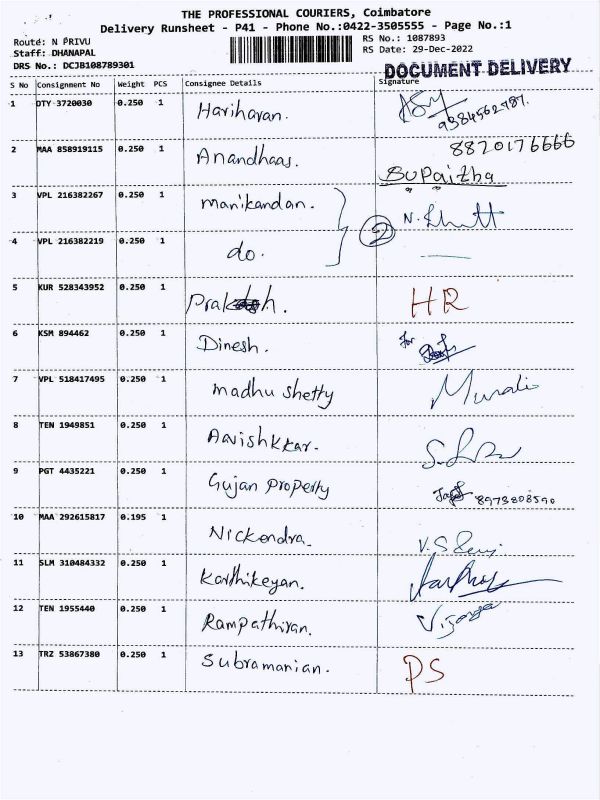 THE PROFESSIONAL COURIERS, Coimbatore
Delivery Runsheet - P41 - Phone No.:0422-3505555 - Page No.:1
Route: N PRIVU
RS No.: 1087893
Staff: DHANAPAL
RS Date: 29-Dec-2022
DRS No.: DCJB108789301
DOCUMENT DELIVERY
S No Consignment No Weight PCS Consignee Details Signature
1 DTY 3720030 0.250 1 Hariharan. 9384562787.
2 MAA 858919115 0.250 1 Anandhaas. 8820176666
Bupaitha
3 VPL 216382267 0.250 1 manikandan. N.
2
4 VPL 216382219 0.250 1 do.
5 KUR 528343952 0.250 1 HR
6 KSM 894462 0.250 1 Dinesh. for
7 VPL 518417495 0.250 1 madhu shetty Murali
8 TEN 1949851 0.250 1 Aavishkkar.
9 PGT 4435221 0.250 1 Gujan Property 8973808590
10 MAA 292615817 0.195 1 Nickendra.
11 SLM 310484332 0.250 1 Karthikeyan.
12 TEN 1955440 0.250 1 Rampathiran.
13 TRZ 53867380 0.250 1 Subramanian. PS